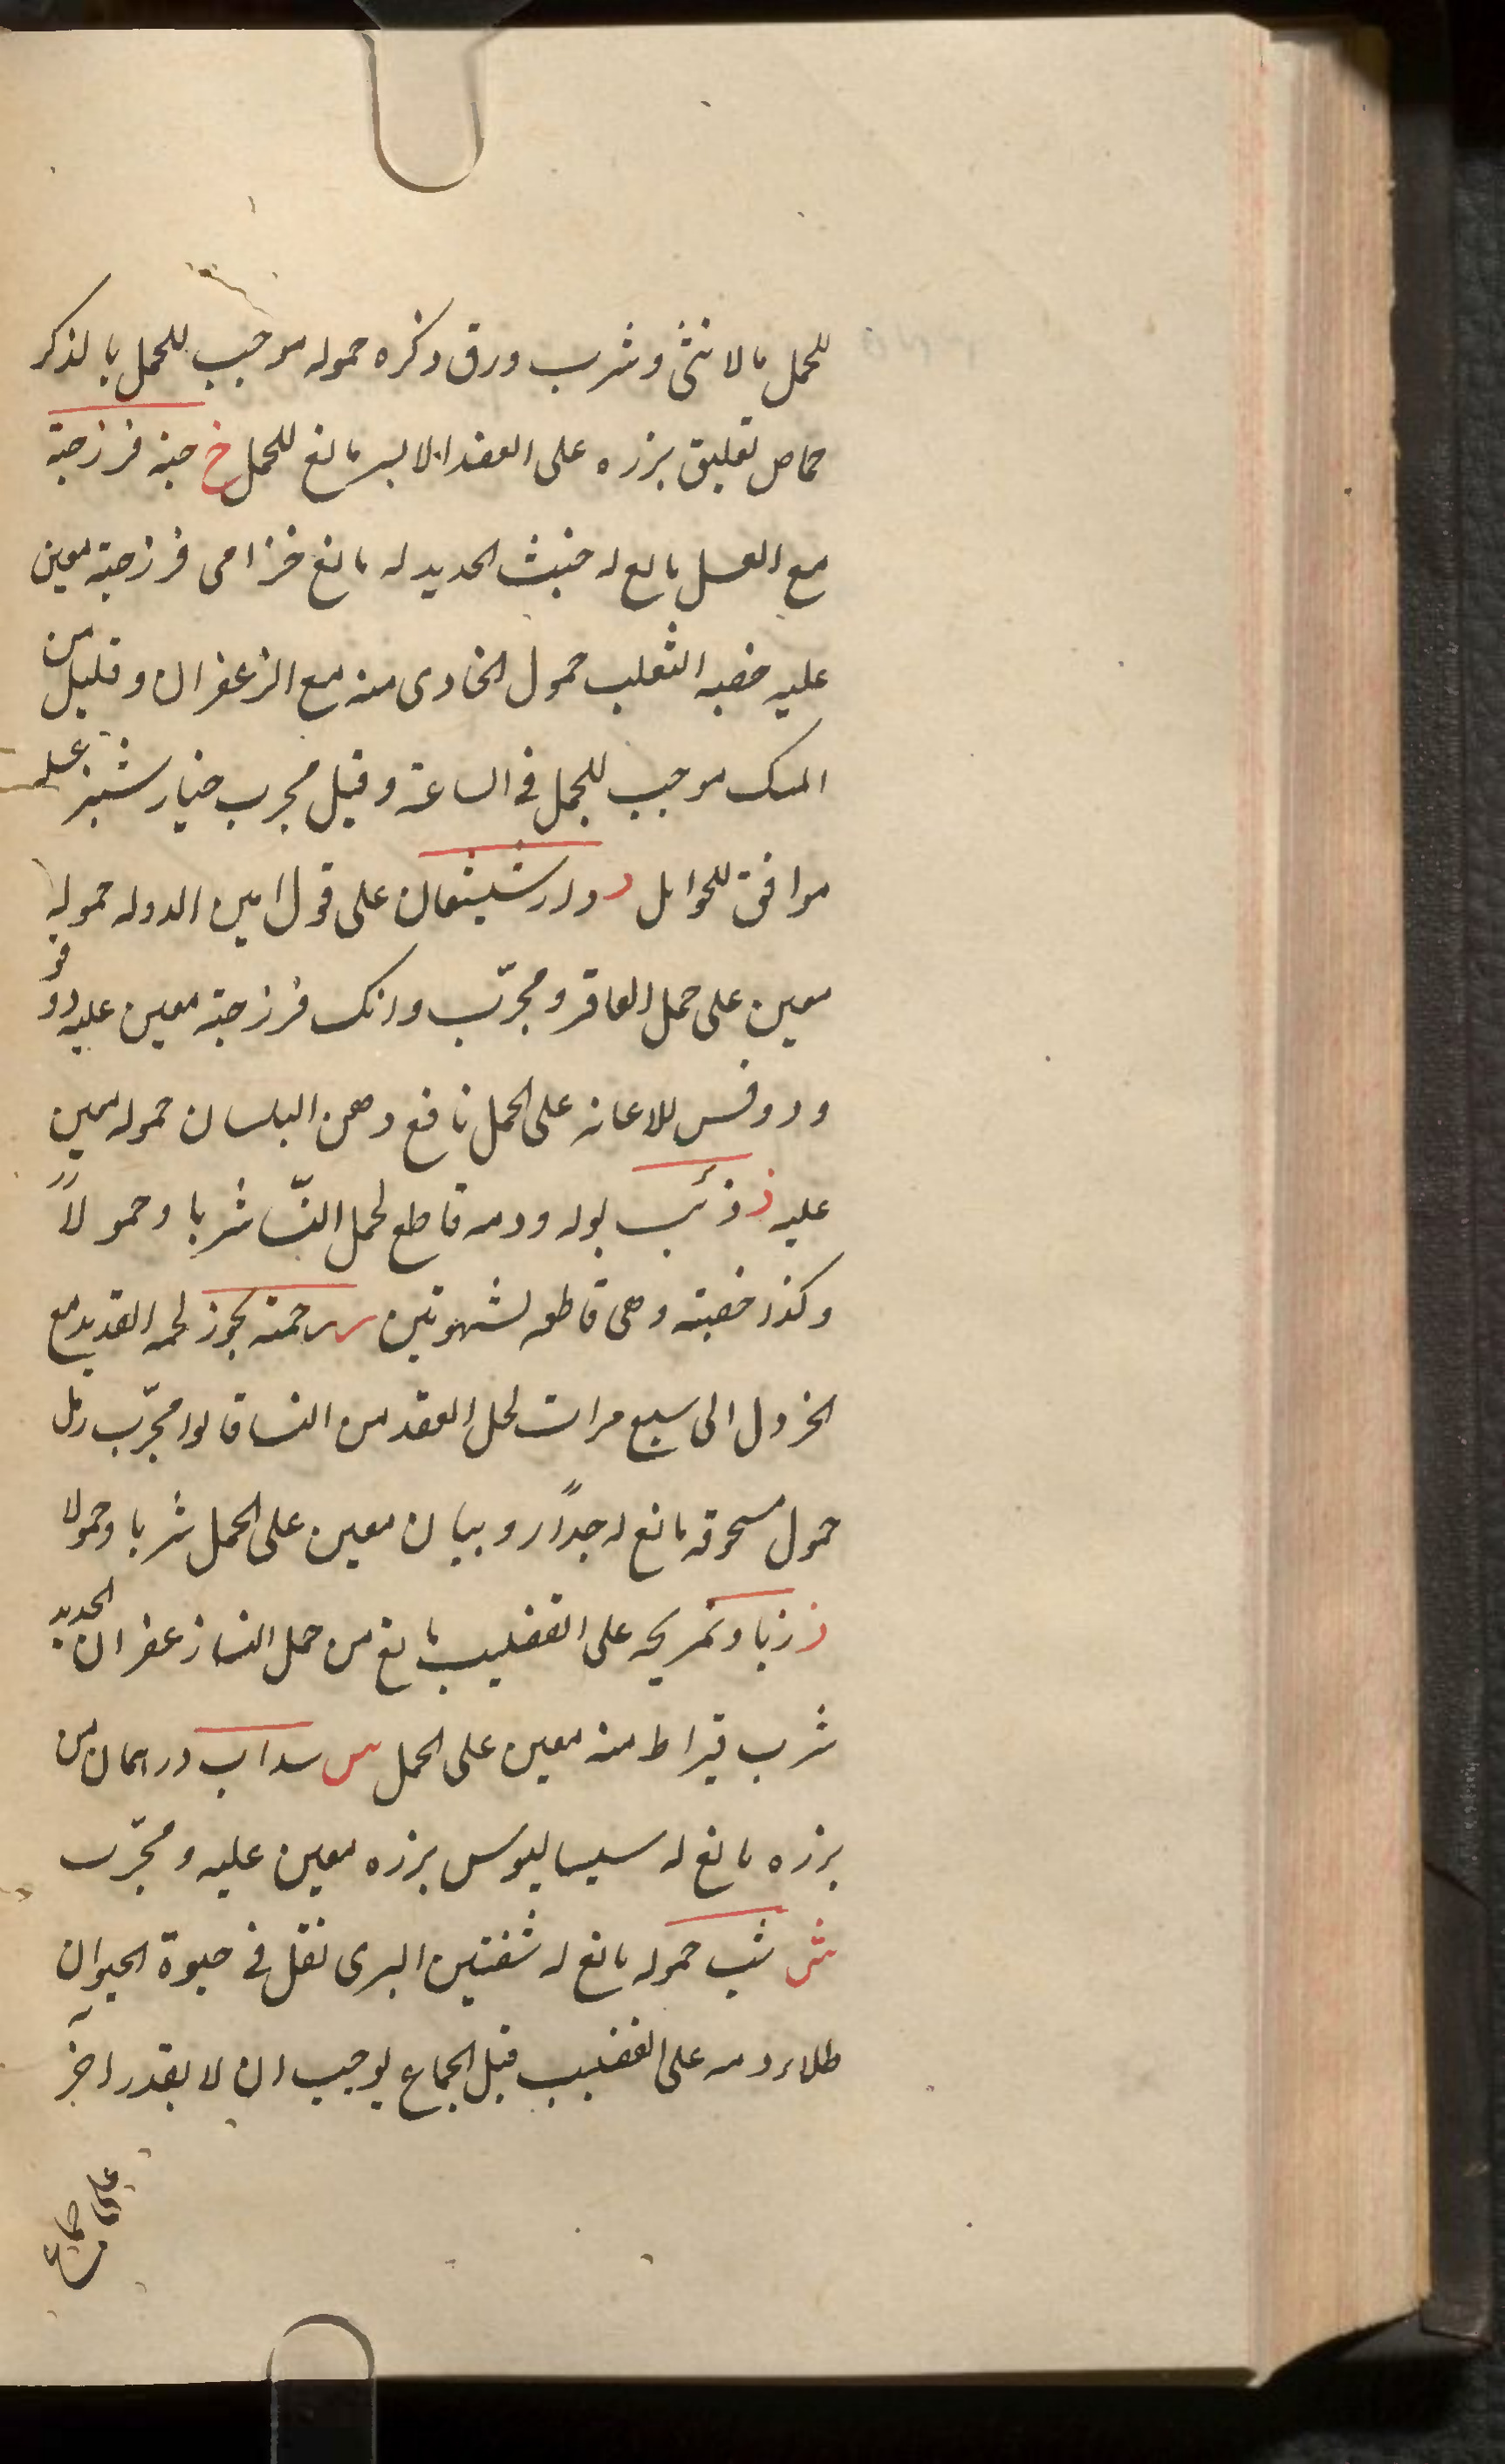 للحمل بالانثى وشرب ورق ذكره حموله موجب للحمل بالذكر
حماص تعليق بزره على العضد الايسر مانع للحمل خ خبه فرزجة
مع العسل مانع له خبث الحديد له مانع خزامى فرزجته معين
عليه خصيه الثعلب حمول الخادى منه مع الزعفران وقليل من
المسك موجب للحمل فى الساعة وقيل مجرب خيار شنبر عسله
موافق للحوامل د دار شيشعان على قول امين الدوله حموله
معين على حمل العاقر ومجرّب وانك فرزجته معين عليه دوقو
ودوقس للاعانه على الحمل نافع دهن البلسان حموله معين
عليه ذ ذئب بوله ودمه قاطع لحمل النسّا شربا وحمولاً
وكذا خصيته وهى قاطعه لشهوتين ر رحمته بجوز لحمه القديد مع
الخردل الى سبع مرات لحل العقد من النسا قالوا مجرّب رمل
حمول مسحوقه مانع له جداً روبيان معين على الحمل شربا وحمولا
ز زباد تمريحه على القضيب مانع من حمل النسا زعفران الحديد
شرب قيراط منه معين على الحمل س سداب درهمان من
بزره مانع له سيساليوس بزره معين عليه ومجرّب
ش شب حموله مانع له شفنين البرى نقل فى حيوة الحيوان
طلاء دمه على القضيب قبل الجماع يوجب ان لا يقدر اخر
على جماع